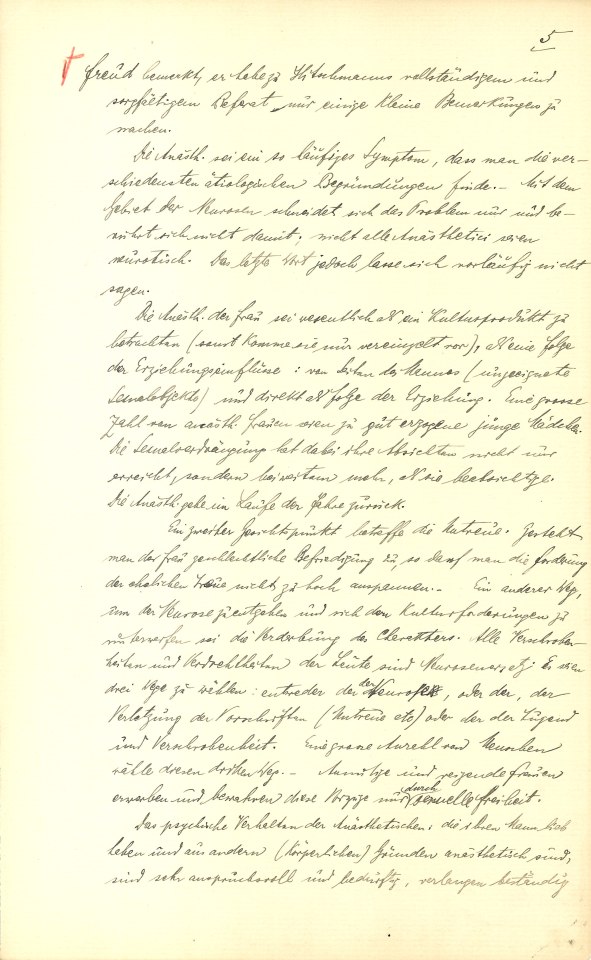 5
Freud bemerkt, er habe zu Hitschmanns vollständigem und
sorgfältigem Referat nur einige kleine Bemerkungen zu
machen.
Die Anästh. sei ein so häufiges Symptom, dass man die ver-
schiedensten ätiologischen Begründungen finde. – Mit dem
Gebiet der Neurosen schneidet sich das Problem nur und be-
rührt sich nicht damit; nicht alle Anästhetici seien
neurotisch. Das letzte Wort jedoch lasse sich vorläufig nicht
sagen.
Die Anästh. der Frau sei wesentlich als ein Kulturprodukt zu
betrachten (sonst komme sie nur vereinzelt vor), als eine Folge
der Erziehungseinflüsse: von Seiten des Mannes (ungeeignete
Sexualobjekte) und direkt als Folge der Erziehung. Eine grosse
Zahl von anästh. Frauen seien zu gut erzogene junge Mädchen.
Die Sexualverdrängung hat dabei ihre Absichten nicht nur
erreicht, sondern bei weitem mehr, als sie beabsichtige.
Die Anästh. gehe im Laufe der Jahre zurück.
Ein zweiter Gesichtspunkt betreffe die Untreue. Gesteht
man der Frau geschlechtliche Befriedigung zu, so darf man die Forderung
der ehelichen Treue nicht zu hoch anspannen. – Ein anderer Weg,
um der Neurose zu entgehen und sich den Kulturforderungen zu
unterwerfen sei die Verderbung des Charakters. Alle Verschroben-
heiten und Verdrehtheiten der Leute sind Neurosenersatz. Es seien
drei Wege zu wählen: entweder der der Neurose, oder der, der
Verletzung der Vorschriften (Untreue etc) oder der der Tugend
und Verschrobenheit. Eine grosse Anzahl von Menschen
wähle diesen dritten Weg. – Anmutige und reizende Frauen
erwerben und bewahren diese Vorzüge nur durch sexuelle Freiheit.
Das psychische Verhalten der Anästhetischen: die ihren Mann lieb
haben und aus andern (körperlichen) Gründen anästhetisch sind,
sind sehr anspruchsvoll und bedürftig, verlangen beständig